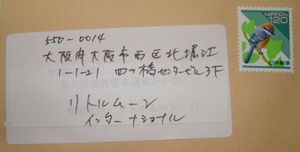 550-0014
大阪府大阪市西区北堀江
1-1-21 四ツ橋センタービル3F
リトルムーン
インターナショナル
NIPPON
120
日本郵便